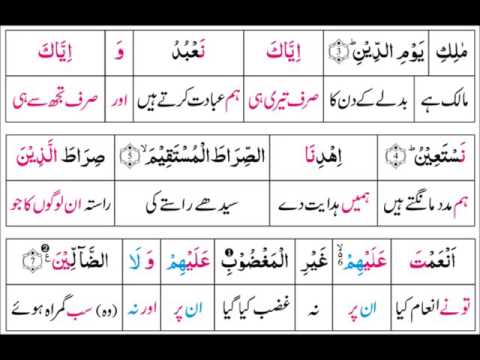 مٰلِكِ يَوْمِ الدِّيْنِ ۝3ؕ اِيَّاكَ نَعْبُدُ وَ اِيَّاكَ
مالک ہے بدلے کے دن کا صرف تیری ہی ہم عبادت کرتے ہیں اور صرف تجھ سے ہی
نَسْتَعِيْنُ ۝4ؕ اِهْدِنَا الصِّرَاطَ الْمُسْتَقِيْمَ ۝5ۙ صِرَاطَ الَّذِيْنَ
ہم مدد مانگتے ہیں ہمیں ہدایت دے سیدھے راستے کی راستہ ان لوگوں کا جو
اَنْعَمْتَ عَلَيْهِمْ ۝6ۙ غَيْرِ الْمَغْضُوْبِ❶ عَلَيْهِمْ وَلَا الضَّآلِّيْنَ❷ ۝7ع
تو نے انعام کیا ان پر نہ غضب کیا گیا ان پر اور نہ (وہ) سب گمراہ ہوئے